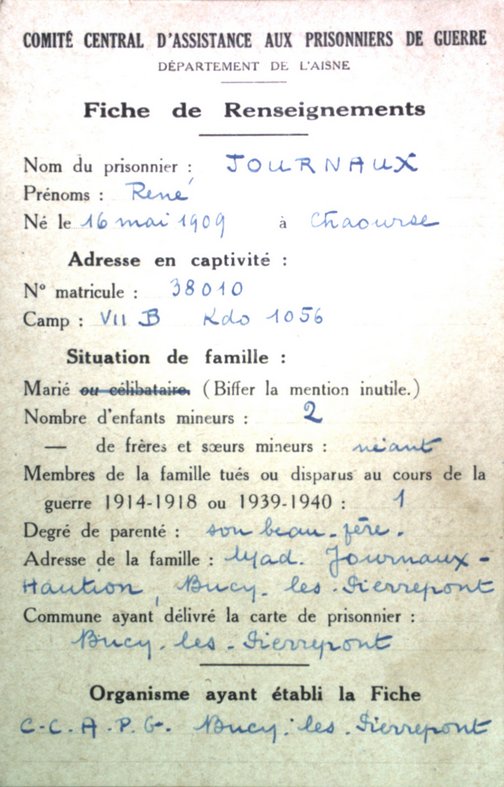 COMITÉ CENTRAL D'ASSISTANCE AUX PRISONNIERS DE GUERRE
DÉPARTEMENT DE L'AISNE
Fiche de Renseignements
Nom du prisonnier : JOURNAUX
Prénoms : René
Né le 16 mai 1909 à Chaourse
Adresse en captivité :
N° matricule : 38010
Camp : VII B Kdo 1056
Situation de famille :
Marié ou célibataire. (Biffer la mention inutile.)
Nombre d'enfants mineurs : 2
— de frères et sœurs mineurs : néant
Membres de la famille tués ou disparus au cours de la
guerre 1914-1918 ou 1939-1940 : 1
Degré de parenté : son beau-père.
Adresse de la famille : Mad. Journaux-
Haution, Bucy-les-Pierrepont
Commune ayant délivré la carte de prisonnier :
Bucy-les-Pierrepont
Organisme ayant établi la Fiche
C.C.A.P.G. Bucy-les-Pierrepont